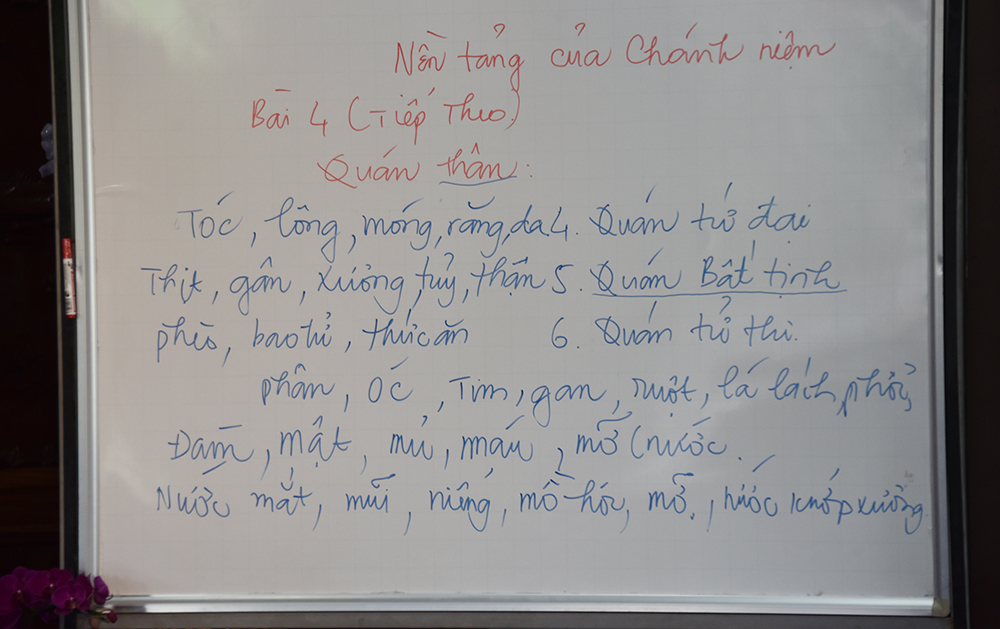 Nền tảng của Chánh niệm
Bài 4 (Tiếp Theo)
Quán thân:
Tóc, lông, móng, răng, da 4. Quán tứ đại
Thịt, gân, xương, tuỷ, thận 5. Quán Bất tịnh
phèo, bao tử, thức ăn 6. Quán tử thi.
phân, óc, Tim, gan, ruột, lá lách, phổi,
Đàm, mật, mủ, máu, mỡ (nước.
Nước mắt, mũi, miếng, mồ hôi, mỡ, nước khớp xương.